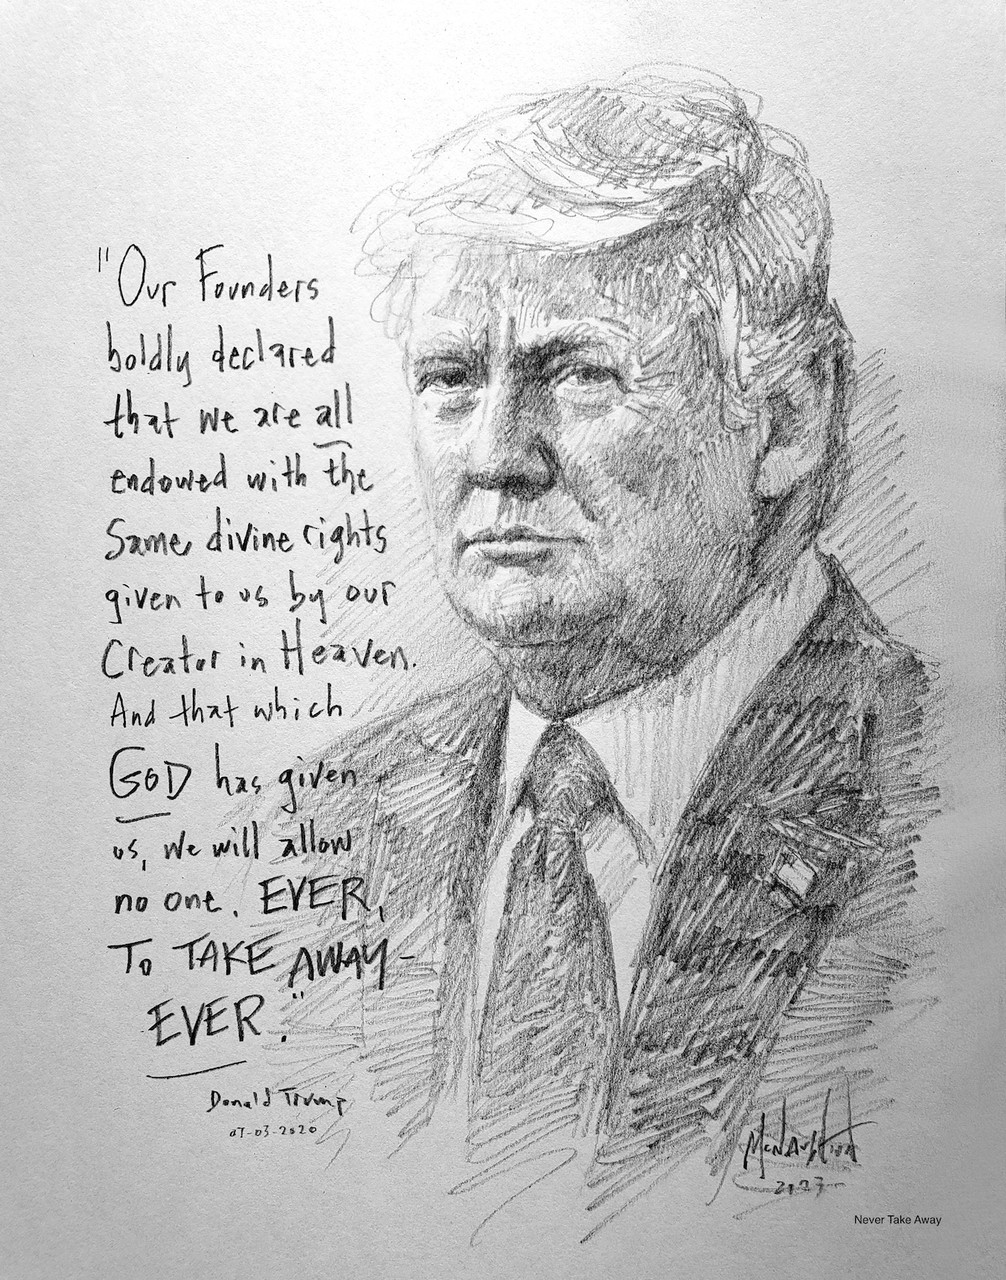 "Our Founders
boldly declared
that we are all
endowed with the
Same divine rights
given to us by our
Creator in Heaven.
And that which
GOD has given
us, we will allow
no one, EVER,
TO TAKE AWAY-
EVER."
Donald Trump
07-03-2020
McNaughton
2023
Never Take Away